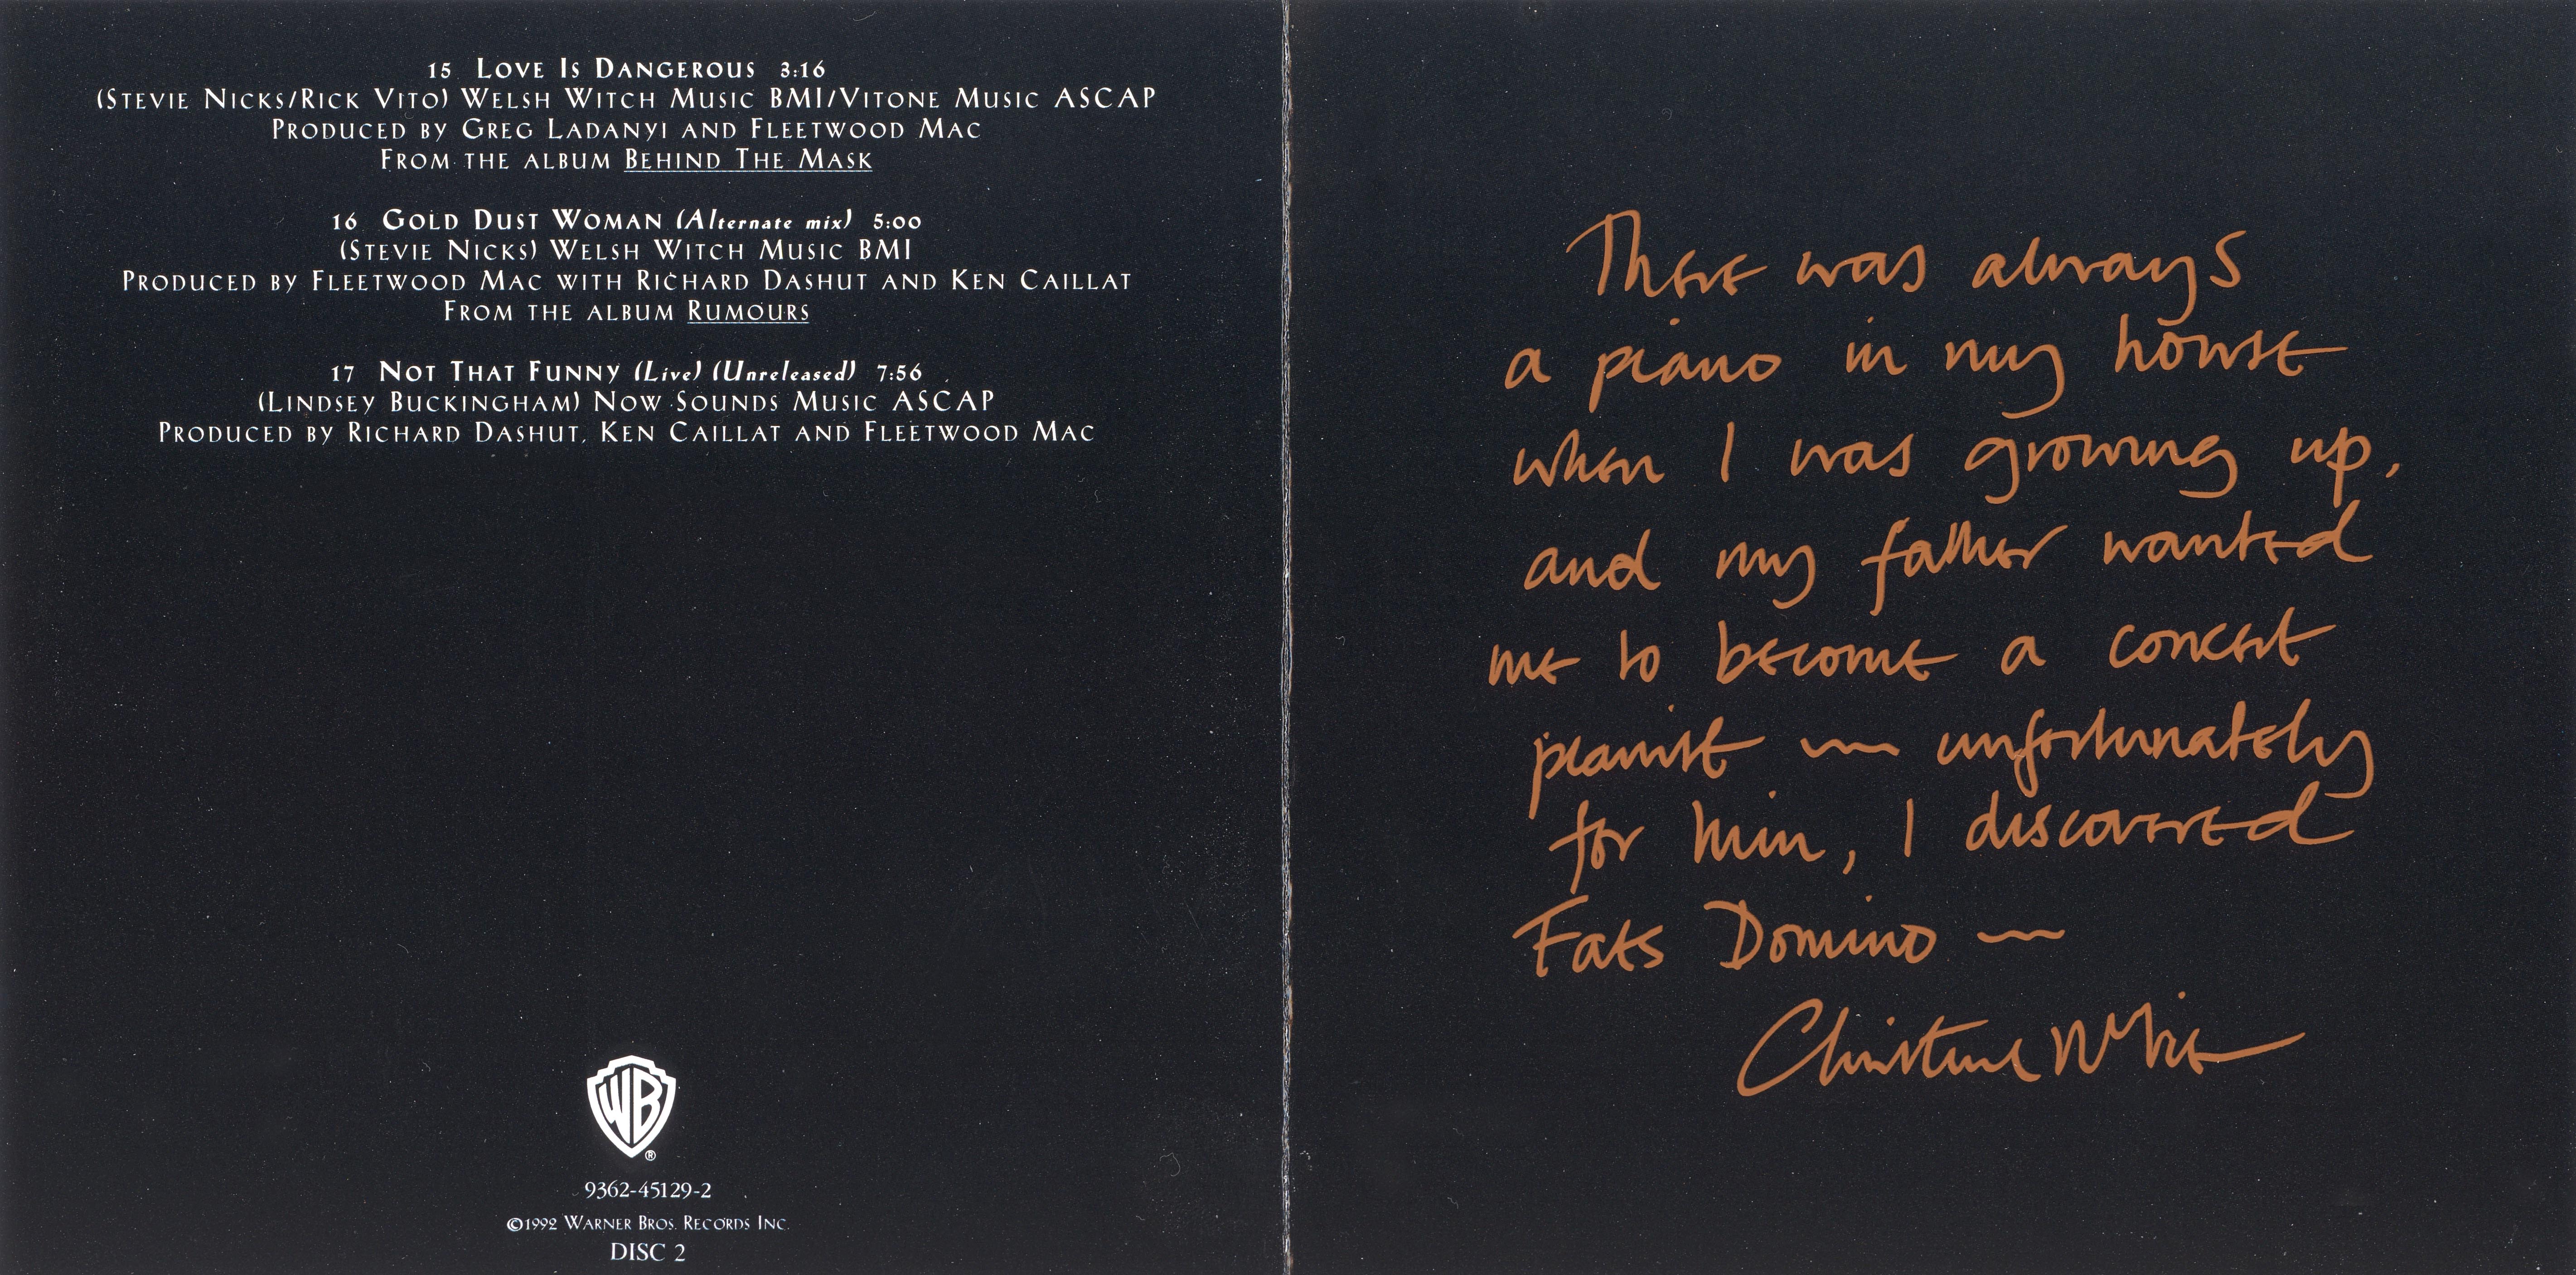 15 Love Is Dangerous 3:16
(Stevie Nicks/Rick Vito) Welsh Witch Music BMI/Vitone Music ASCAP
Produced by Greg Ladanyi and Fleetwood Mac
From the album Behind The Mask
16 Gold Dust Woman (Alternate mix) 5:00
(Stevie Nicks) Welsh Witch Music BMI
Produced by Fleetwood Mac with Richard Dashut and Ken Caillat
From the album Rumours
17 Not That Funny (Live) (Unreleased) 7:56
(Lindsey Buckingham) Now Sounds Music ASCAP
Produced by Richard Dashut, Ken Caillat and Fleetwood Mac
WB ®
9362-45129-2
©1992 Warner Bros. Records Inc.
DISC 2
There was always
a piano in my house
when I was growing up,
and my father wanted
me to become a concert
pianist — unfortunately
for him, I discovered
Fats Domino —
Christine McVie